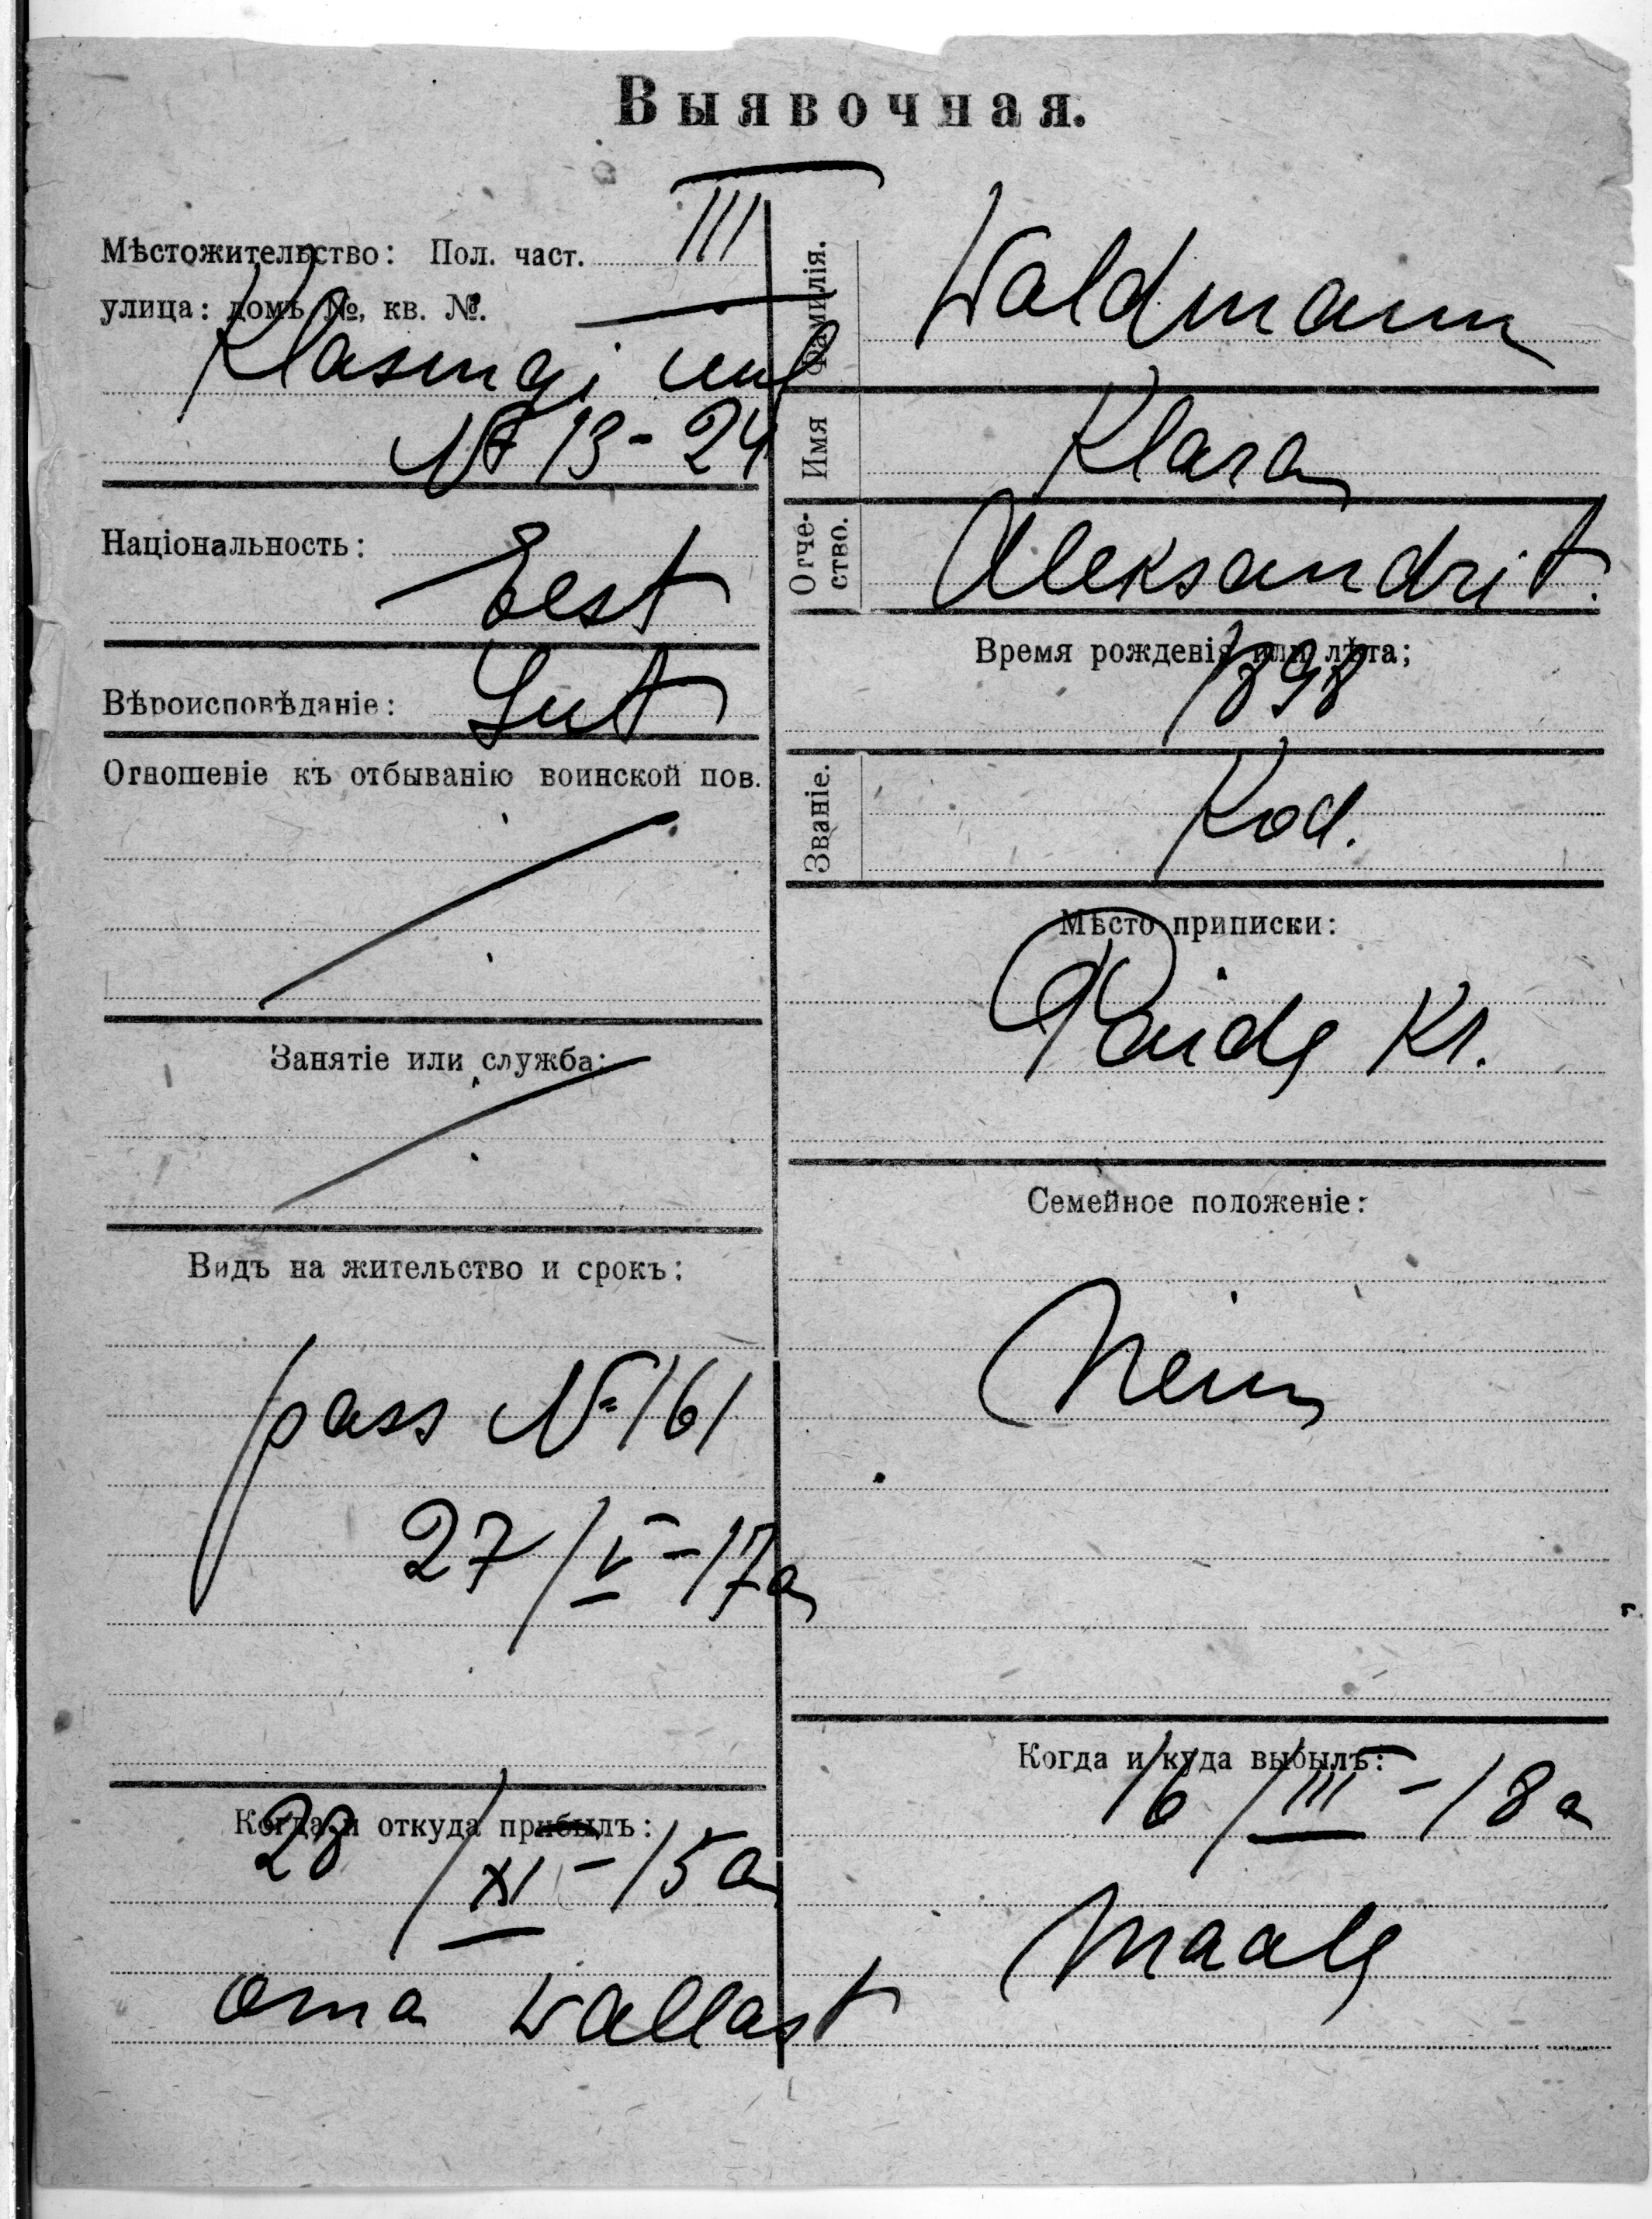 Выявочная.
Мѣстожительство: Пол. част. III
улица: домъ №, кв. №.
Klasingi uul
№ 13-24
Національность: Eest
Вѣроисповѣданіе: Lut
Отношеніе къ отбыванію воинской пов.
Занятіе или служба:
Видъ на жительство и срокъ:
pass № 161
27/V-17a
Когда и откуда прибылъ:
28/XI-15a
oma wallast
Фамилія. Waldmann
Имя Klara
Отче-
ство. Aleksandri t.
Время рожденія или лѣта;
1898
Званіе. Kod.
Мѣсто приписки:
Paide Kr.
Семейное положеніе:
Neiu
Когда и куда выбылъ:
16/III-18a
Maale